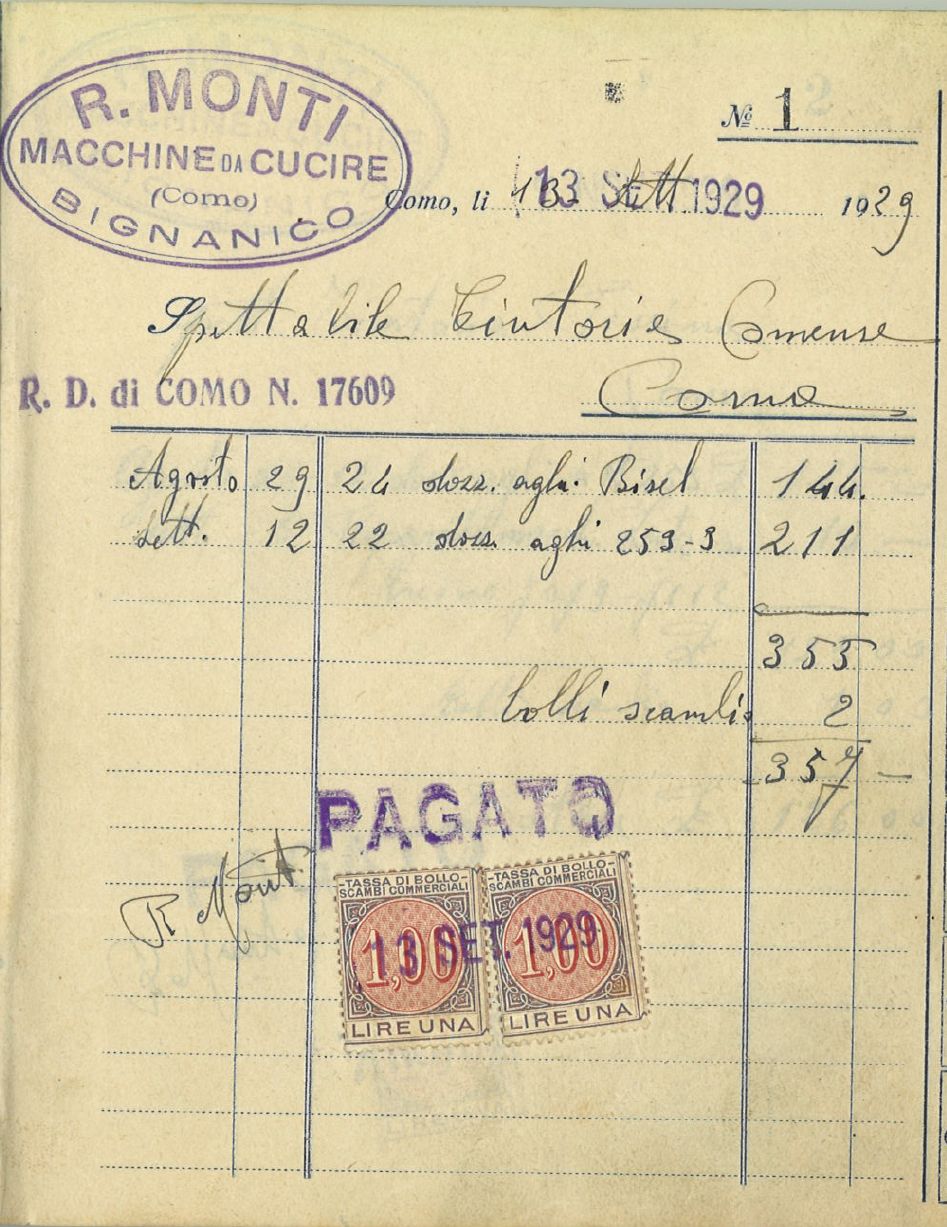 R. MONTI
MACCHINE DA CUCIRE
(Como)
BIGNANICO
№ 1
Como, li 13 Sett. 1929
13 SET. 1929
Spettabile Tintoria Comense
R. D. di COMO N. 17609
Como
Agosto 29 24 dozz. aghi Bisel 144.
Sett. 12 22 dozz. aghi 253-3 211
355
bolli scambio 2
357 —
PAGATO
R Monti
TASSA DI BOLLO SCAMBI COMMERCIALI TASSA DI BOLLO SCAMBI COMMERCIALI
13 SET. 1929
1,00 1,00
LIRE UNA LIRE UNA